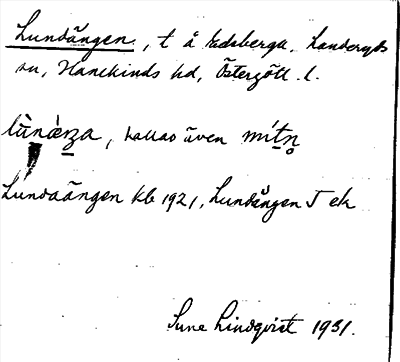 Lundängen, t å Edsberga, Landeryds
sn, Hanekinds hd, Östergötl. l.
lùnáṉza, kallas även mítṉ
Lundaängen kb 1921, Lundängen J ek
Sune Lindqvist 1931.